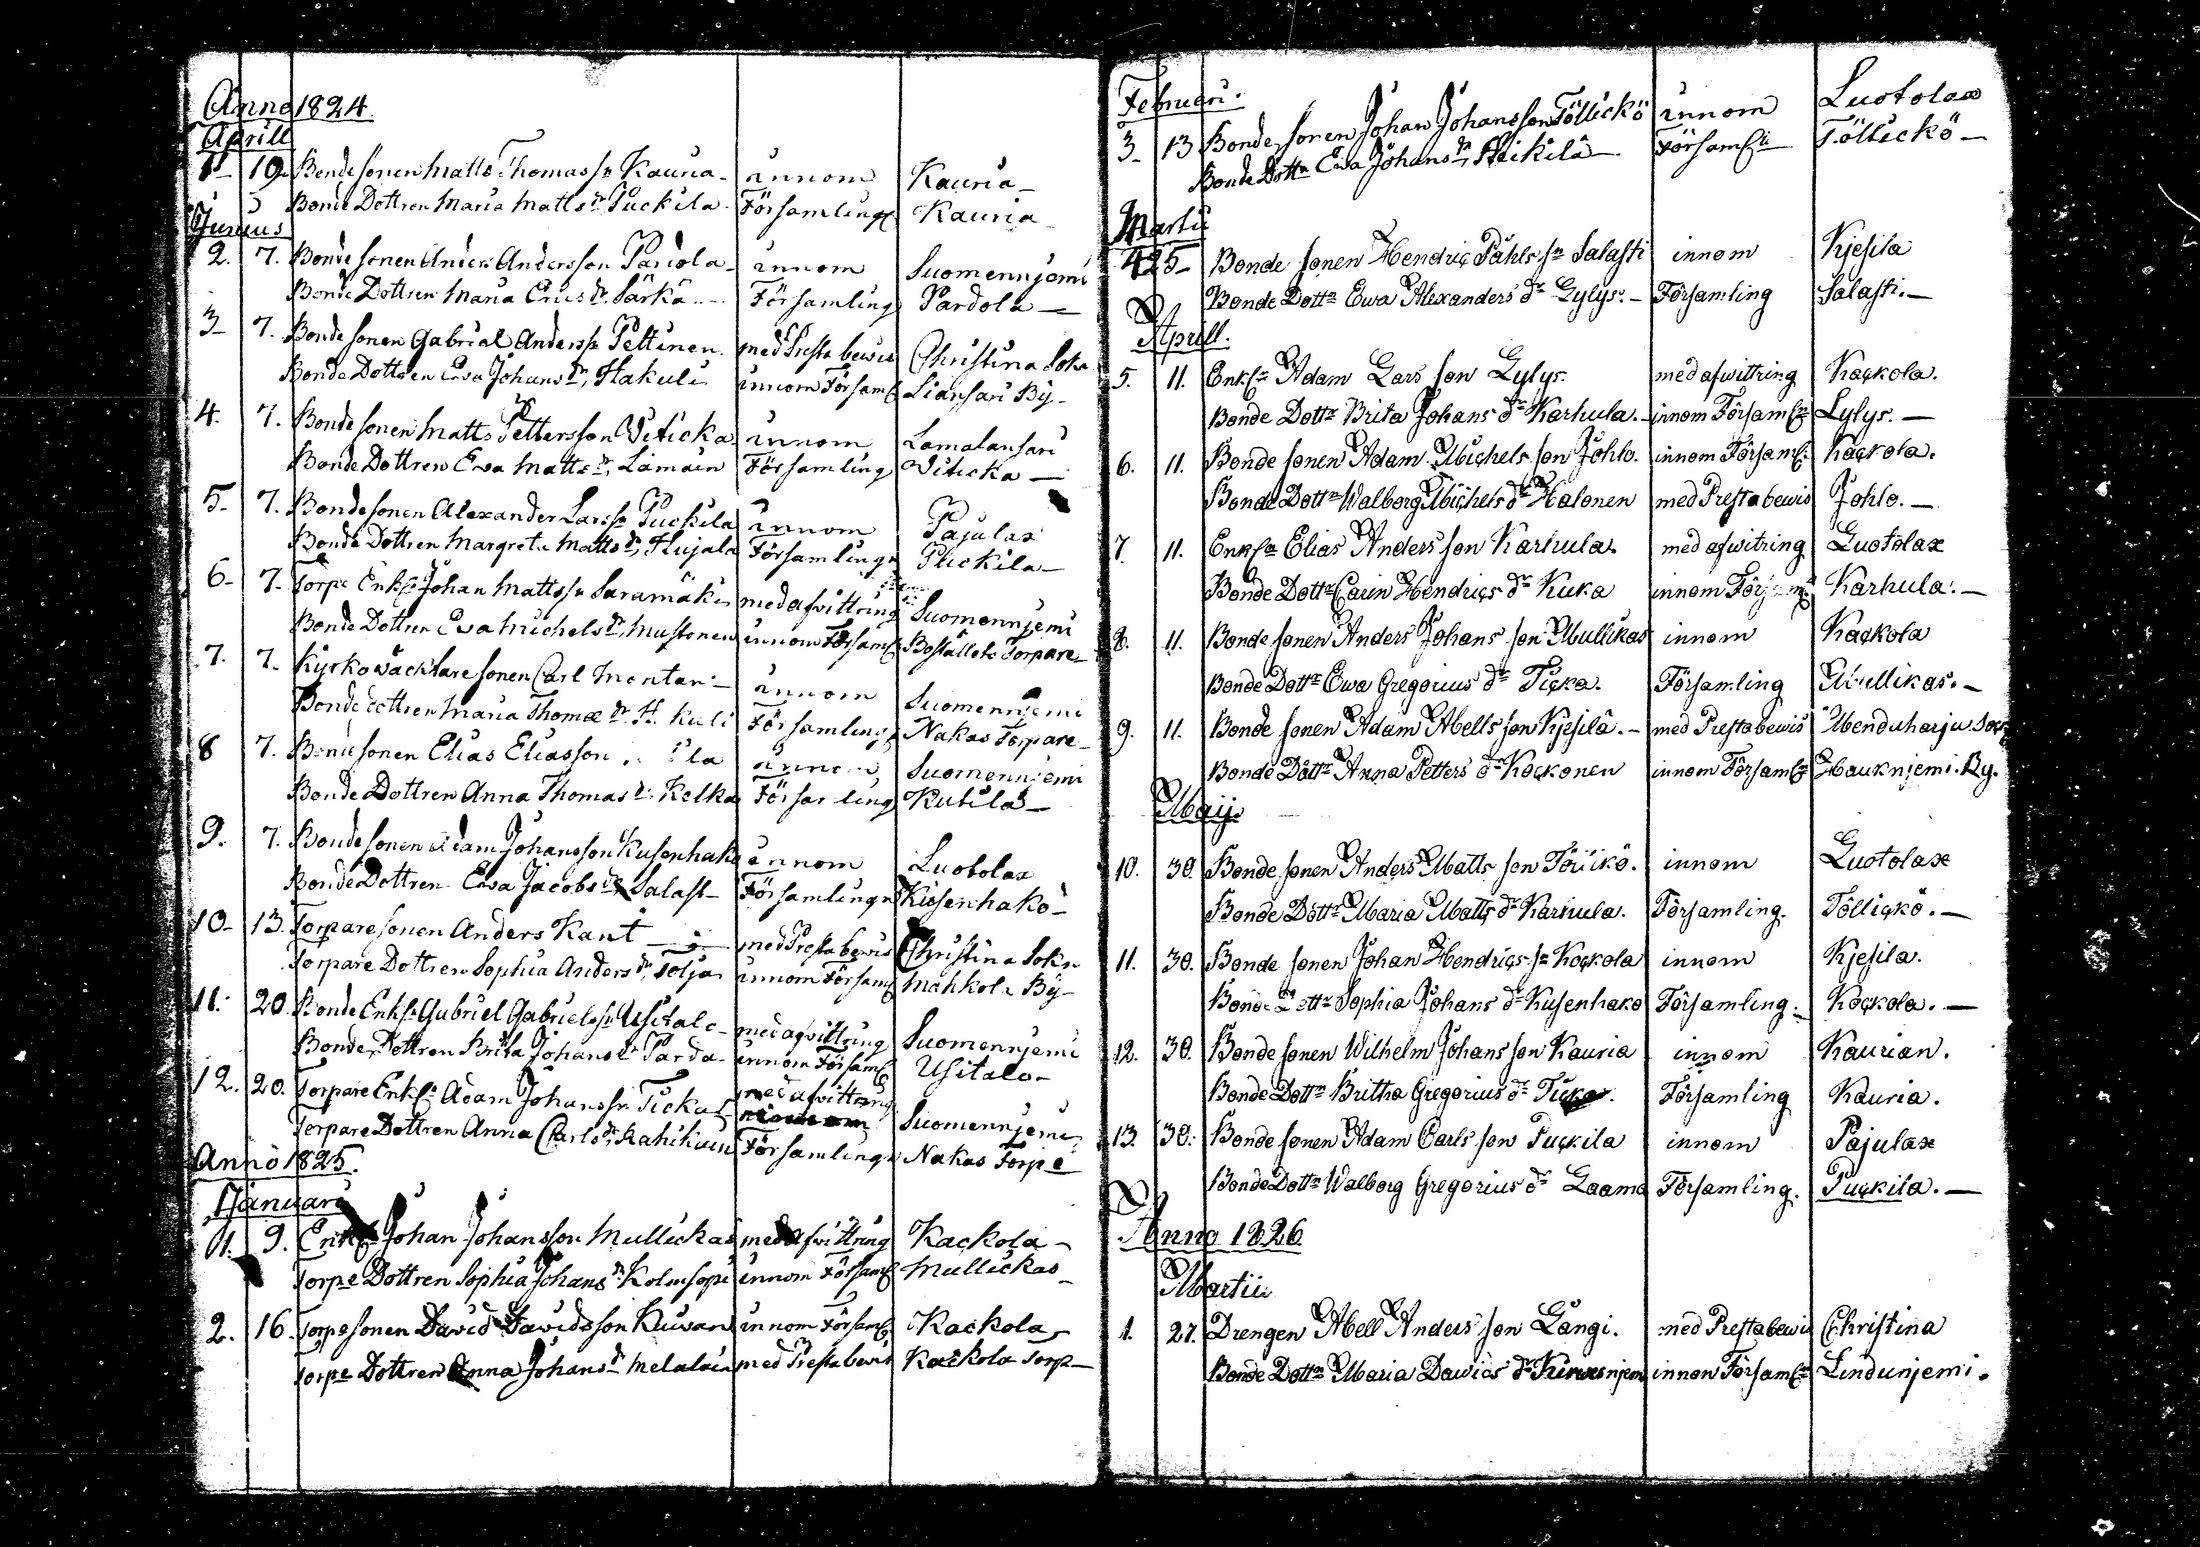 Anno 1824.
Aprill
1- 19. Bonde sonen Matts Thomass n Kauria- innom Kauria-
Bonde Dottren Maria Matts dr Puckila Församling Kauria
Junius
2. 7. Bonde sonen Anders Andersson Pardola- innom Suomennjemi
Bonde Dottren Maria Erics dr Särkä.- Församling Pardola-
3- 7. Bonde sonen Gabriel Anderss n Peltinen. med Presta bewis Christina Sokn
Bonde Dottren Ewa Johans dr Hakuli innom Förs aml Liansari By-
4. 7. Bonde sonen Matts Pettersson Viticka innom Lamalansari
Bonde Dottren Ewa Matts dr Lamain Församling Viticka-
5- 7. Bonde sonen Alexander Larss n Puckila innom Pajulax
Bonde Dottren Margreta Matts dr Hujala Församling Puckila-
6- 7. Torpe Enkl. Johan Mattss n Saramäki med afvittring Suomennjemi
Bonde Dottren Ewa Michels dr Mustonen innom Församl Boställets Torpare-
7. 7. Kyrkowäcktare sonen Carl Montan- innom Suomennjemi
Bonde dottren Maria Thomæ dr Församling Nakas Torpare-
8 7. Bonde sonen Elias Eliasson innom Suomennjemi
Bonde Dottren Anna Thomas dr Kelka Församling Kutila-
9. 7. Bonde sonen Adam Johansson Kusenhako innom Luotolax
Bonde Dottren Ewa Jacobs dr Salast- Församling Kusenhako-
10- 13. Torpare sonen Anders Kant- med Presta bewis Christina Sokn
Torpare Dottren Sophia Anders dr Tolja innom Församl Mahkola By-
11. 20. Bonde Enkl. Gabriel Gabrielss n Usitalo- med afvittring Suomennjemi
Bonde Dottren Brita Johans dr Parda- innom Församl Usitalo-
12. 20. Torpare Enkl. Adam Johanss n Tickas med afvittring Suomennjemi
Torpare Dottren Anna Carls dr Församling Nakas Torpe
Anno 1825.
Januari
1. 9. Enkl. Johan Johansson Mullickas med Afvittring Kackola-
Torpe Dottren Sophia Johans dr Kolmsopi innom Församl Mullickas-
2. 16. Torpe sonen David Davidsson Kuvan innom Församl Kackola
Torpe Dottren Anna Johans dr Melalain med Presta bewis Kackola Torp-
Februari.
3- 13 Bonde sonen Johan Johansson Töllickö innom Luotolax
Bonde Dottn Ewa Johans dr Heikilä- Församl Töllickö-
Martii
4 25- Bonde sonen Hendric Påhls sn Salasti innom Kjesila
Bonde Dottn Ewa Alexanders dr Gylys.- Församling Salasti.-
Aprill.
5. 11. Enkl Adam Lars son Lylys. med afwittring Kackola.
Bonde Dottr Brita Johans dr Karhula. innom Församl Lylys.-
6. 11. Bonde sonen Adam Michels son Johlo. innom Församl. Kackola.
Bonde Dottn Walborg Michels dr Halonen med Presta bewis Johlo.-
7. 11. Enkl Elias Anders son Karhula. med afwitring Luotolax
Bonde Dottr Carin Hendrics dr Kuka innom Karhula.-
8. 11. Bonde sonen Anders Johans son Mullikas innom Kackola
Bonde Dottr Ewa Gregorius dr Ticka. Församling Mullikas.-
9. 11. Bonde sonen Adam Abells son Kjesilä.- med Presta bewis Menduharju Sock
Bonde Dottr Anna Petters dr Kockonen innom Församl Hauknjemi By.
Maij.
10. 30. Bonde sonen Anders Matts son Töllikö. innom Luotolax
Bonde Dottr Maria Matts dr Karhula. Församling. Töllickö.-
11. 30. Bonde sonen Johan Hendrics sn Kockola innom Kjesila.
Bonde Dottr Sophia Johans dr Kusenhako Församling. Kockola.-
12. 30. Bonde sonen Wilhelm Johans son Kauria innom Kaurian.
Bonde Dottn Britha Gregorius dr Ticka. Församling Kauria.
13. 30. Bonde sonen Adam Carls son Puckila innom Pajulax
Bonde Dottn Walborg Gregorius dr Laama Församling. Puckila.-
Anno 1826
Martii
1. 27. Drengen Abell Anders son Längi. med Presta bewis Christina
Bonde Dottn Maria Dawids dr innom Församl Lindunjemi.